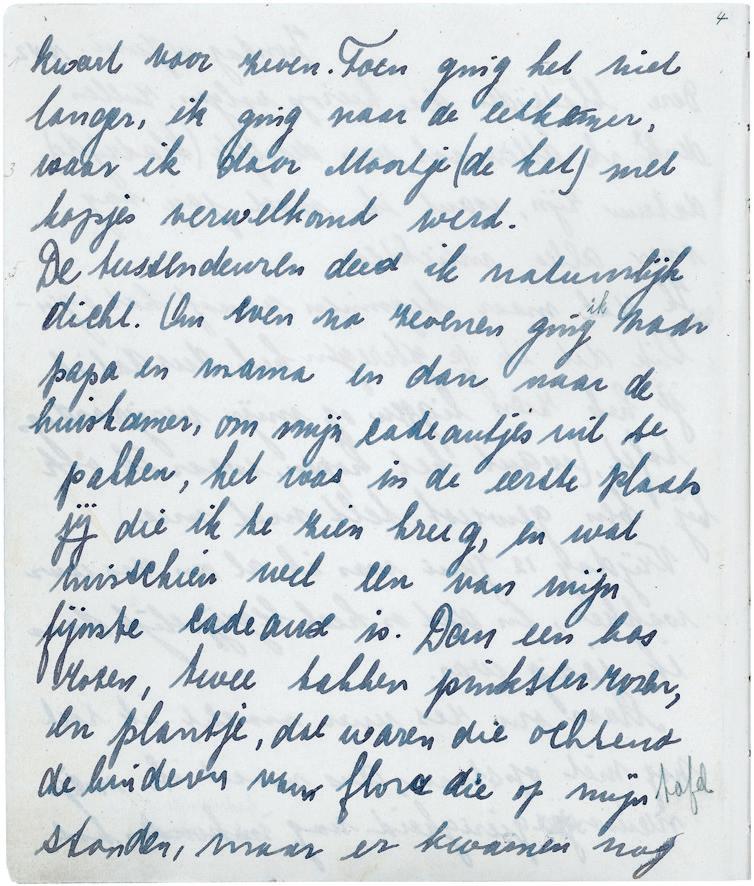 4
kwart voor zeven. Toen ging het niet
langer, ik ging naar de eetkamer,
waar ik door Moortje (de kat) met
kopjes verwelkomd werd.
De tussendeuren deed ik natuurlijk
dicht. Om even na zevenen ging ik naar
papa en mama en dan naar de
huiskamer, om mijn cadeautjes uit te
pakken, het was in de eerste plaats
jij die ik te zien kreeg, en wat
misschien wel een van mijn
fijnste cadeaus is. Dan een bos
rozen, twee takken pinksterrozen,
en plantje, dat waren die ochtend
de kinderen van flora die op mijn tafel
stonden, maar er kwamen nog